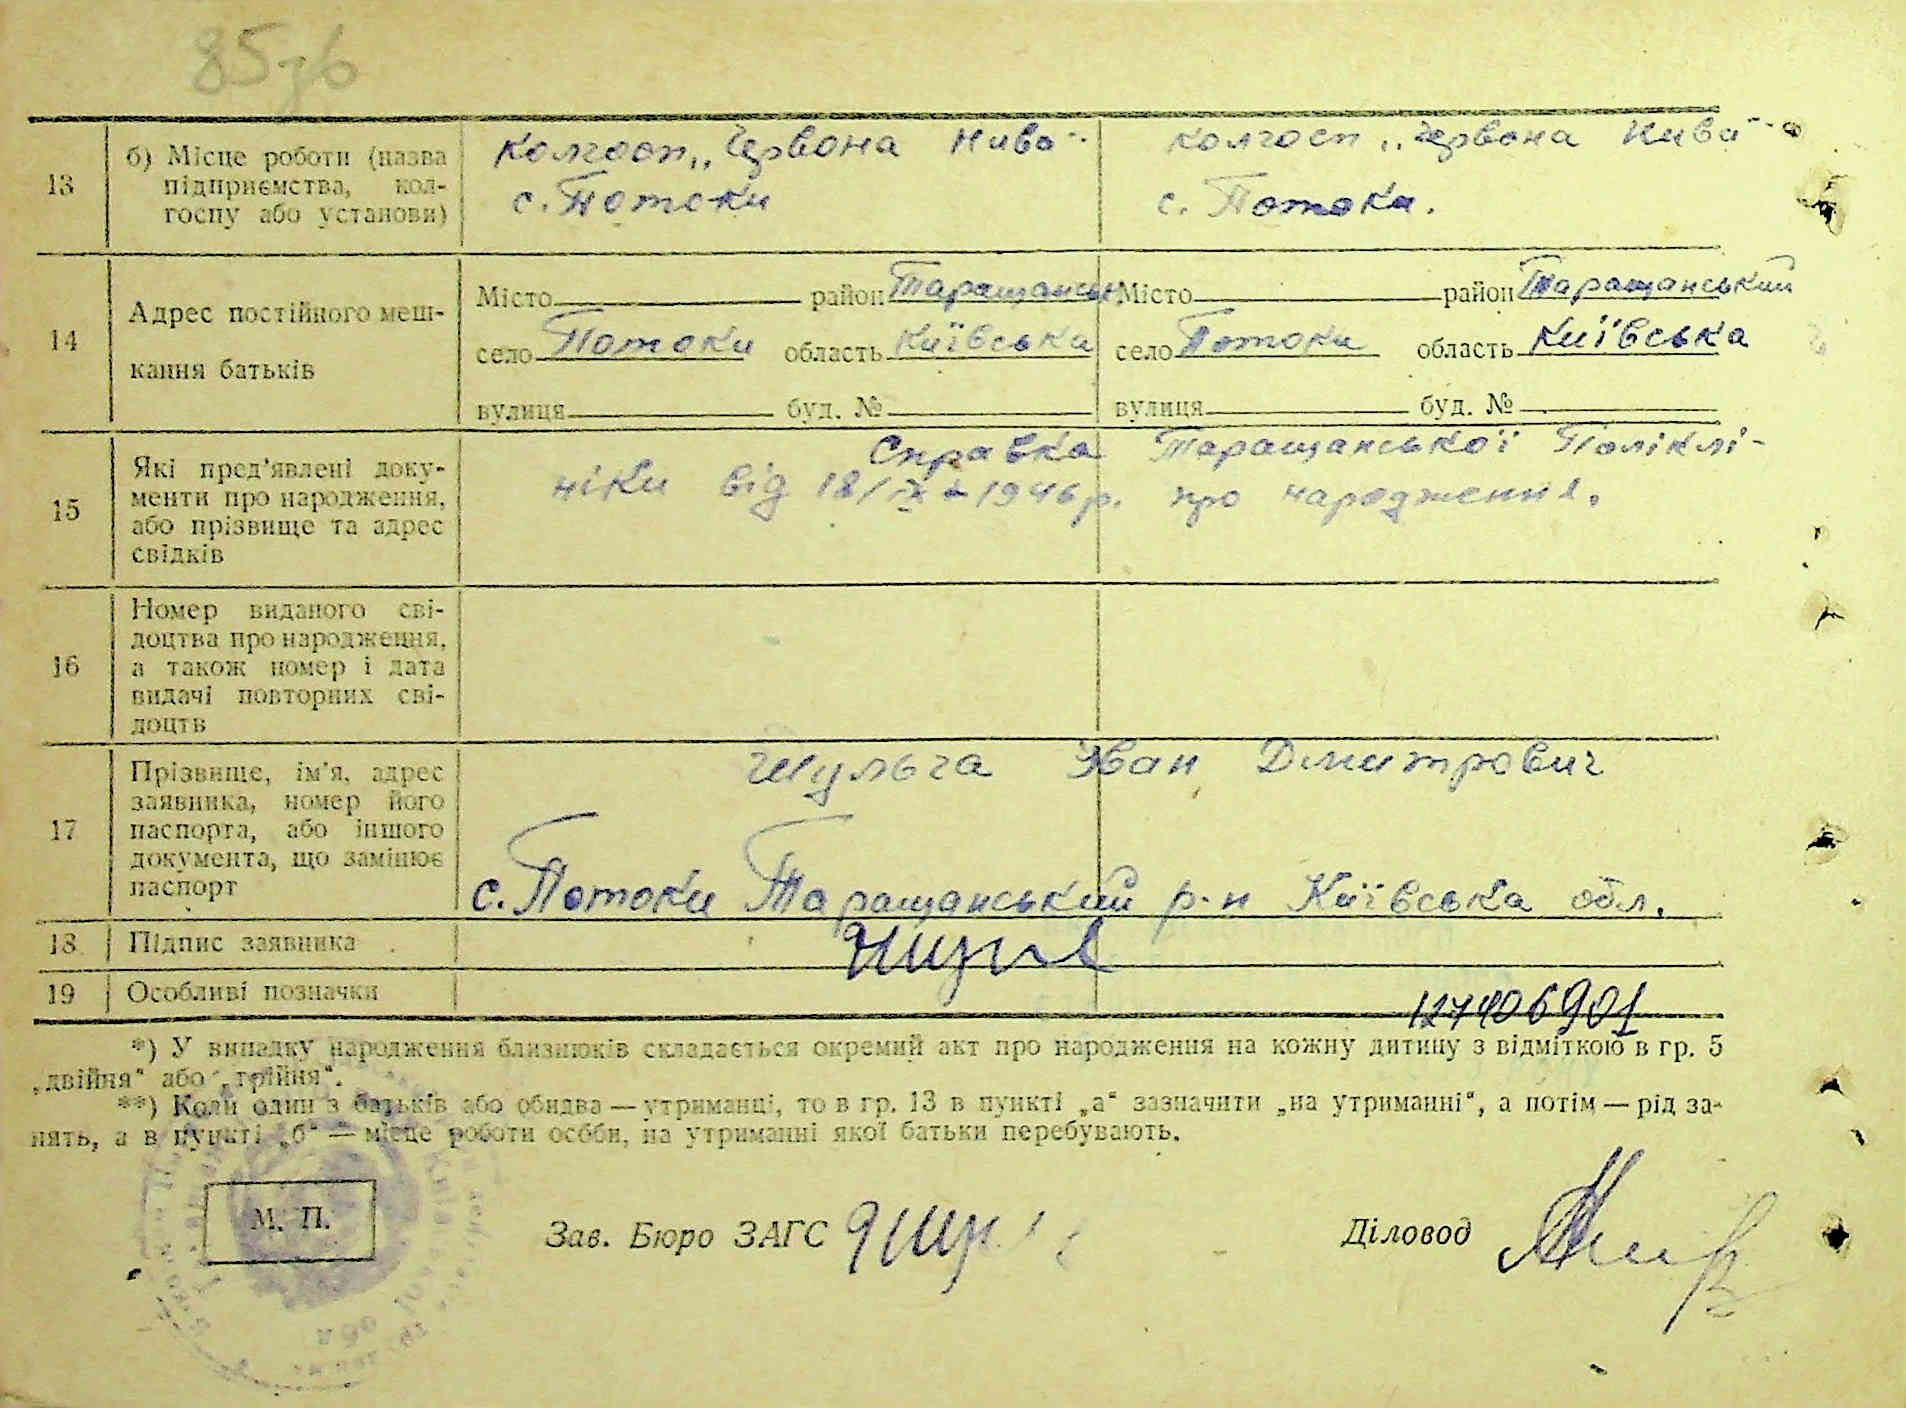 85зв
13 б) Місце роботи (назва колгосп „Червона Нива" колгосп „Червона Нива"
підприємства, кол- с. Потоки с. Потоки.
госпу або установи)
14 Адрес постійного меш-
кання батьків
Місто район Таращанськ Місто район Таращанський
село Потоки область Київська село Потоки область Київська
вулиця буд. № вулиця буд. №
15 Які пред'явлені доку- Справка Таращанської Полікли-
менти про народження, ніки від 18/IX 1946р. про народження.
або прізвище та адрес
свідків
16 Номер виданого сві-
доцтва про народження,
а також номер і дата
видачі повторних сві-
доцтв
17 Прізвище, ім'я, адрес Шульга Іван Дмитрович
заявника, номер його
паспорта, або іншого
документа, що замінює
паспорт с. Потоки Таращанський р-н Київська обл.
18 Підпис заявника
19 Особливі позначки
127406901
*) У випадку народження близнюків складається окремий акт про народження на кожну дитину з відміткою в гр. 5
„двійня" або „трійня".
**) Коли один з батьків або обидва — утриманці, то в гр. 13 в пункті „а" зазначити „на утриманні", а потім — рід за-
нять, а в пункті „б" — місце роботи особи, на утриманні якої батьки перебувають.
М. П. Зав. Бюро ЗАГС Діловод